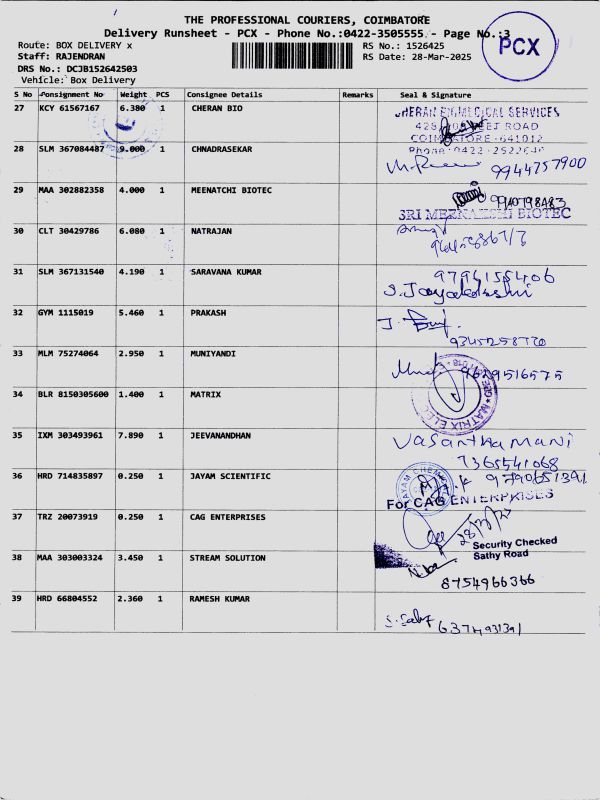 THE PROFESSIONAL COURIERS, COIMBATORE
Delivery Runsheet - PCX - Phone No.:0422-3505555. - Page No.:3
PCX
Route: BOX DELIVERY x
RS No.: 1526425
Staff: RAJENDRAN
RS Date: 28-Mar-2025
DRS No.: DCJB152642503
Vehicle: Box Delivery
S No Ponsignment No Weight PCS Consignee Details Remarks Seal & Signature
27 KCY 61567167 6.380 1 CHERAN BIO
CHERAN BIOMEDICAL SERVICES
COIMBATORE -641012
Phone 0422-2522640
28 SLM 367084487 9.000 1 CHNADRASEKAR
9944757900
29 MAA 302882358 4.000 1 MEENATCHI BIOTEC
SRI MEENAKSHI BIOTEC
30 CLT 30429786 6.080 1 NATRAJAN
31 SLM 367131540 4.190 1 SARAVANA KUMAR
S. Jayalakshmi
32 GYM 1115019 5.460 1 PRAKASH
33 MLM 75274064 2.950 1 MUNIYANDI
9659516575
34 BLR 8150305600 1.400 1 MATRIX
MATRIX ELEC
35 IXM 303493961 7.890 1 JEEVANANDHAN
Vasantha Mani
7365541068
36 HRD 714835897 0.250 1 JAYAM SCIENTIFIC
JAYAM CHEMICAL
9790651391
For CAG ENTERPRISES
37 TRZ 20073919 0.250 1 CAG ENTERPRISES
Security Checked
Sathy Road
38 MAA 303003324 3.450 1 STREAM SOLUTION
8754966366
39 HRD 66804552 2.360 1 RAMESH KUMAR